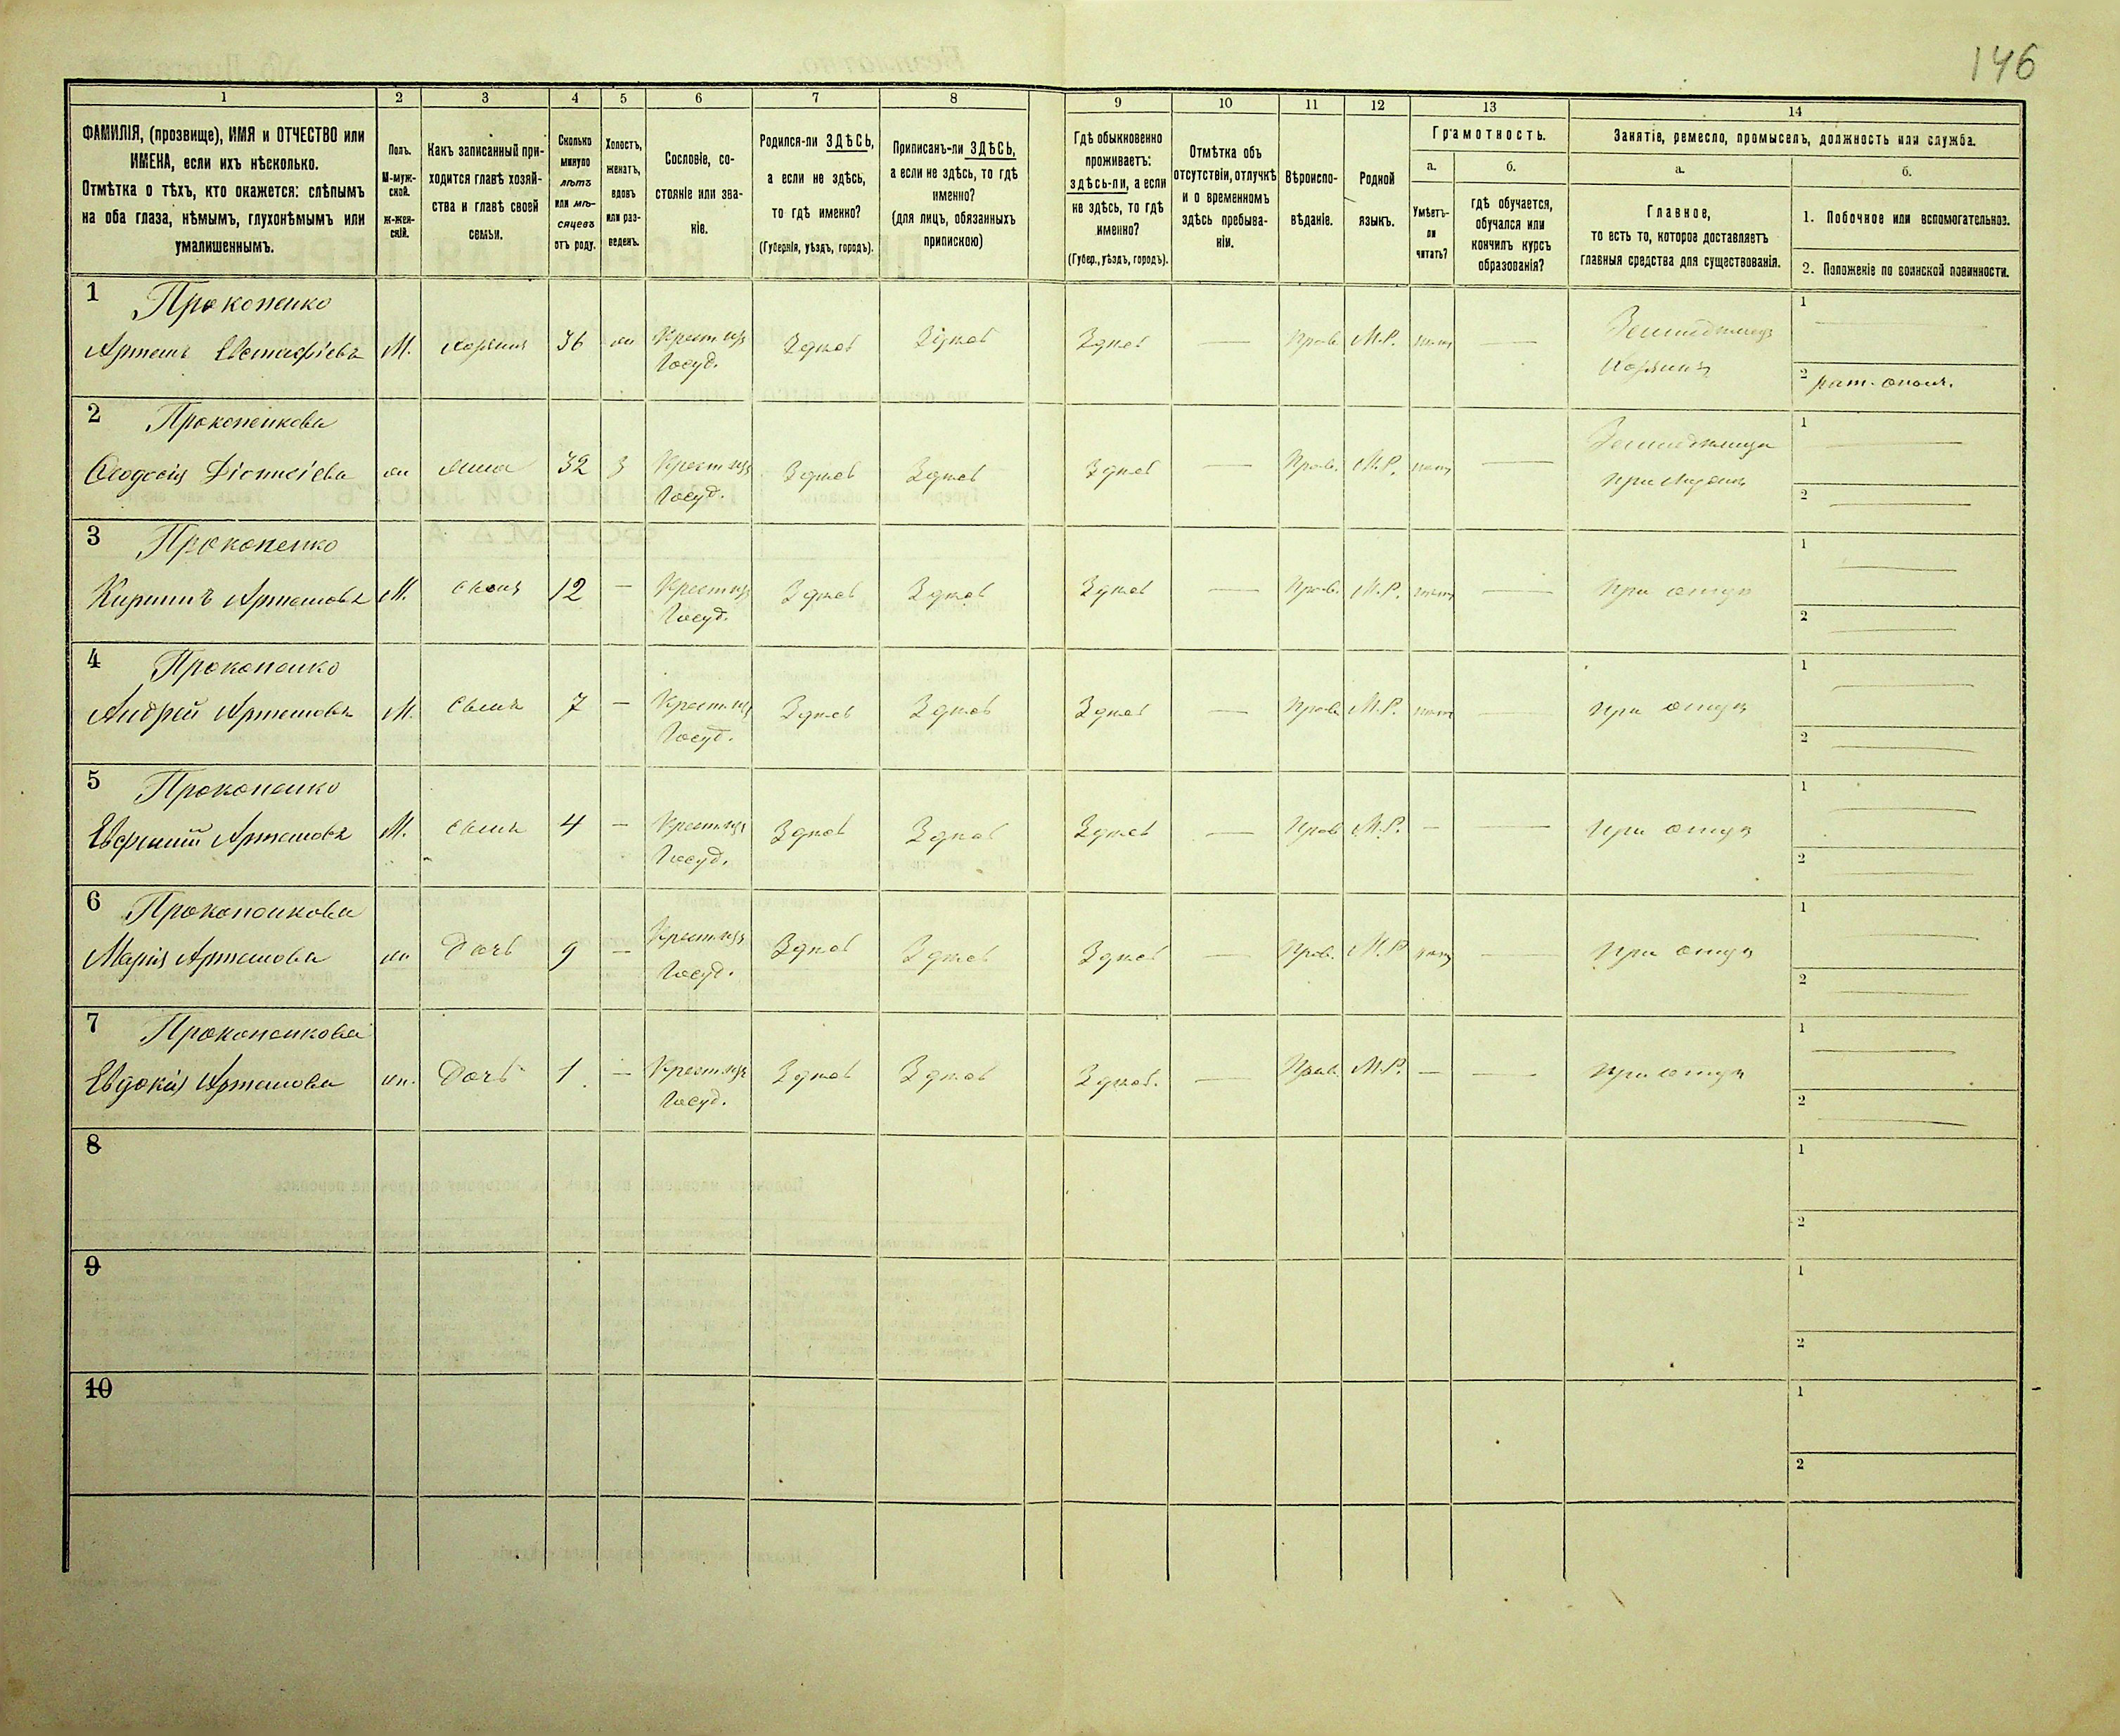 146
1
2
3
4
5
6
7
8
9
10
11
12
13
14
ФАМИЛІЯ, (прозвище), ИМЯ и ОТЧЕСТВО или
ИМЕНА, если ихъ нѣсколько.
Отмѣтка о тѣхъ, кто окажется: слѣпымъ
на оба глаза, нѣмымъ, глухонѣмымъ или
умалишеннымъ.
Полъ.
М-муж-
ской.
ж-жен-
скій.
Какъ записанный при-
ходится главѣ хозяй-
ства и главѣ своей
семьи.
Сколько
минуло
лѣтъ
или мѣ-
сяцевъ
отъ роду.
Холостъ,
женатъ,
вдовъ
или раз-
веденъ.
Сословіе, со-
стояніе или зва-
ніе.
Родился-ли ЗДѢСЬ,
а если не здѣсь,
то гдѣ именно?
(Губернія, уѣздъ, городъ).
Приписанъ-ли ЗДѢСЬ,
а если не здѣсь, то гдѣ
именно?
(для лицъ, обязанныхъ
припискою)
Гдѣ обыкновенно
проживаетъ:
здѣсь-ли, а если
не здѣсь, то гдѣ
именно?
(Губер., уѣздъ, городъ).
Отмѣтка объ
отсутствіи, отлучкѣ
и о временномъ
здѣсь пребыва-
ніи.
Вѣроиспо-
вѣданіе.
Родной
языкъ.
Грамотность.
а.
Умѣетъ-
ли
читать?
б.
гдѣ обучается,
обучался или
кончилъ курсъ
образованія?
Занятіе, ремесло, промыселъ, должность или служба.
а.
Главное,
то есть то, которое доставляетъ
главныя средства для существованія.
б.
1. Побочное или вспомогательное.
2. Положеніе по воинской повинности.
1 Прокопенко
Артемъ Евстафіевъ М. хозяинъ 36 Крест. изъ Госуд. Здесь Здесь Здесь — Прав. М.Р. нетъ — Земледѣлецъ Хозяинъ
1 —
2 рат. ополч.
2 Прокопенкова
Ѳеодосія Діонисіева ж жена 32 З Крест. изъ Госуд. Здесь Здесь Здесь — Прав. М.Р. нетъ — при мужѣ
1 —
2 —
3 Прокопенко
Кириллъ Артемовъ М. сынъ 12 — Крест. изъ Госуд. Здесь Здесь Здесь — Прав. М.Р. нетъ — при отцѣ
1 —
2 —
4 Прокопенко
Андрей Артемовъ М. сынъ 7 — Крест. изъ Госуд. Здесь Здесь Здесь — Прав. М.Р. нетъ — при отцѣ
1 —
2 —
5 Прокопенко
Евфимій Артемовъ М. сынъ 4 — Крест. изъ Госуд. Здесь Здесь Здесь — Прав. М.Р. — — при отцѣ
1 —
2 —
6 Прокопенкова
Марія Артемова ж Дочь 9 — Крест. изъ Госуд. Здесь Здесь Здесь — Прав. М.Р. нетъ — при отцѣ
1 —
2 —
7 Прокопенкова
Евдокія Артемова ж. Дочь 1 — Крест. изъ Госуд. Здесь Здесь Здесь. — Прав. М.Р. — — при отцѣ
1 —
2 —
8
1
2
9
1
2
10
1
2